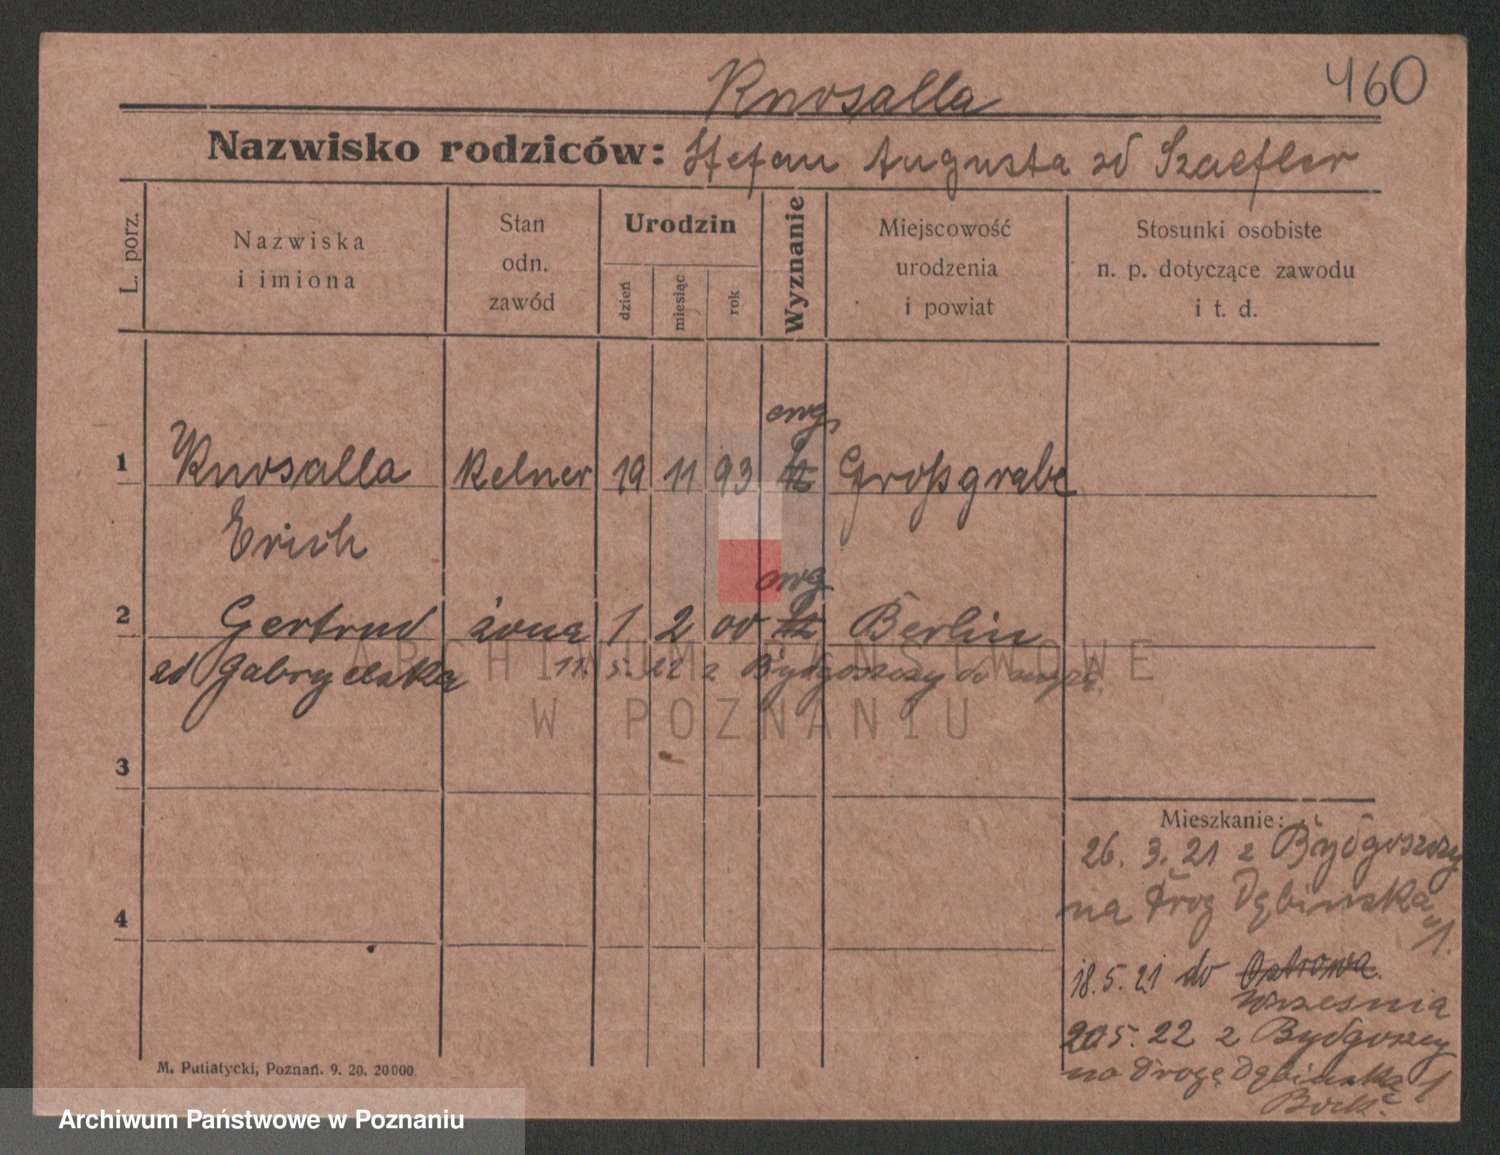 460
Knosalla
Nazwisko rodziców: Stefan Augusta zd Szaefler
L. porz.
Nazwiska i imiona
Stan odn. zawód
Urodzin
dzień
miesiąc
rok
Wyznanie
Miejscowość urodzenia i powiat
Stosunki osobiste n. p. dotyczące zawodu i t. d.
ewg.
1 Knosalla Kelner 19 11 93 kt Großgrabe
Erich
ewg
2 Gertrud żona 1 2 00 kt Berlin
zd Gabryelska 11. 5. 22 z Bydgoszczy do
3
4
Mieszkanie:
26. 3. 21 z Bydgoszczy
na Drog Dębinska
18. 5. 21 do Ostrowa.
Wrzesnia
20 5. 22 z Bydgoszczy
na Drogę Dębinską 1
M. Putiatycki, Poznań. 9. 20. 20000.
ARCHIWUM PAŃSTWOWE
W POZNANIU
Archiwum Państwowe w Poznaniu